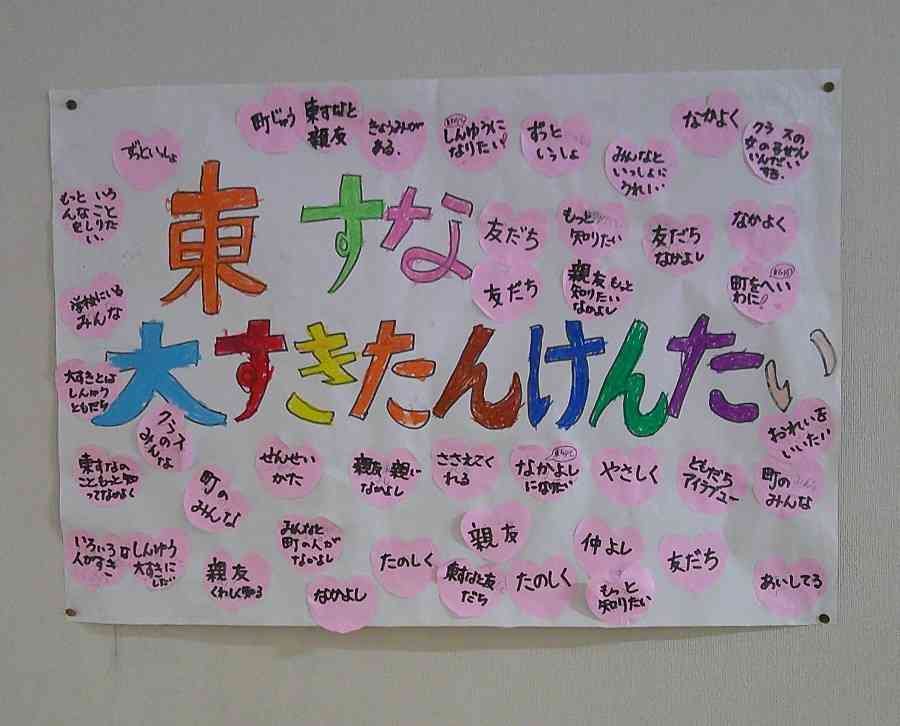 町じゅう
東すなと
親友
きょうみんが
ある、
しんゆうに
なりたい!
ずっと
いっしょ
なかよく
クラスの
女の子ぜん
いんだい
する。
ずっといっしょ
みんなと
いっしょに
うれしい
もっと いろ
んなこと
をしりた
い。
東すな
友だち
もっと
知りたい
友だち
なかよし
なかよく
友だち
親友もっと
知りたい
なかよし
町をへい
わに!
学校にいる
みんな
大すきたんけんたい
大すきとは
しんゆう
ともだち
クラス
みんの
な
おれいを
いいたい
東すなの
こともっと知
ってなかよく
町の
みんな
せんせい
がた
親友 親い
なかよし
ささえてく
れる
なかよし
になりたい
やさしく
ともだち
アイラブユー
町の
みんな
いろいろな
人がすき
しんゆう
大すきに
したい
親友
くわしく知る
みんなと
町の人が
なかよし
なかよし
たのしく
親友
東すなと友
だち
たのしく
仲よし
もっと
知りたい
友だち
あいしてる